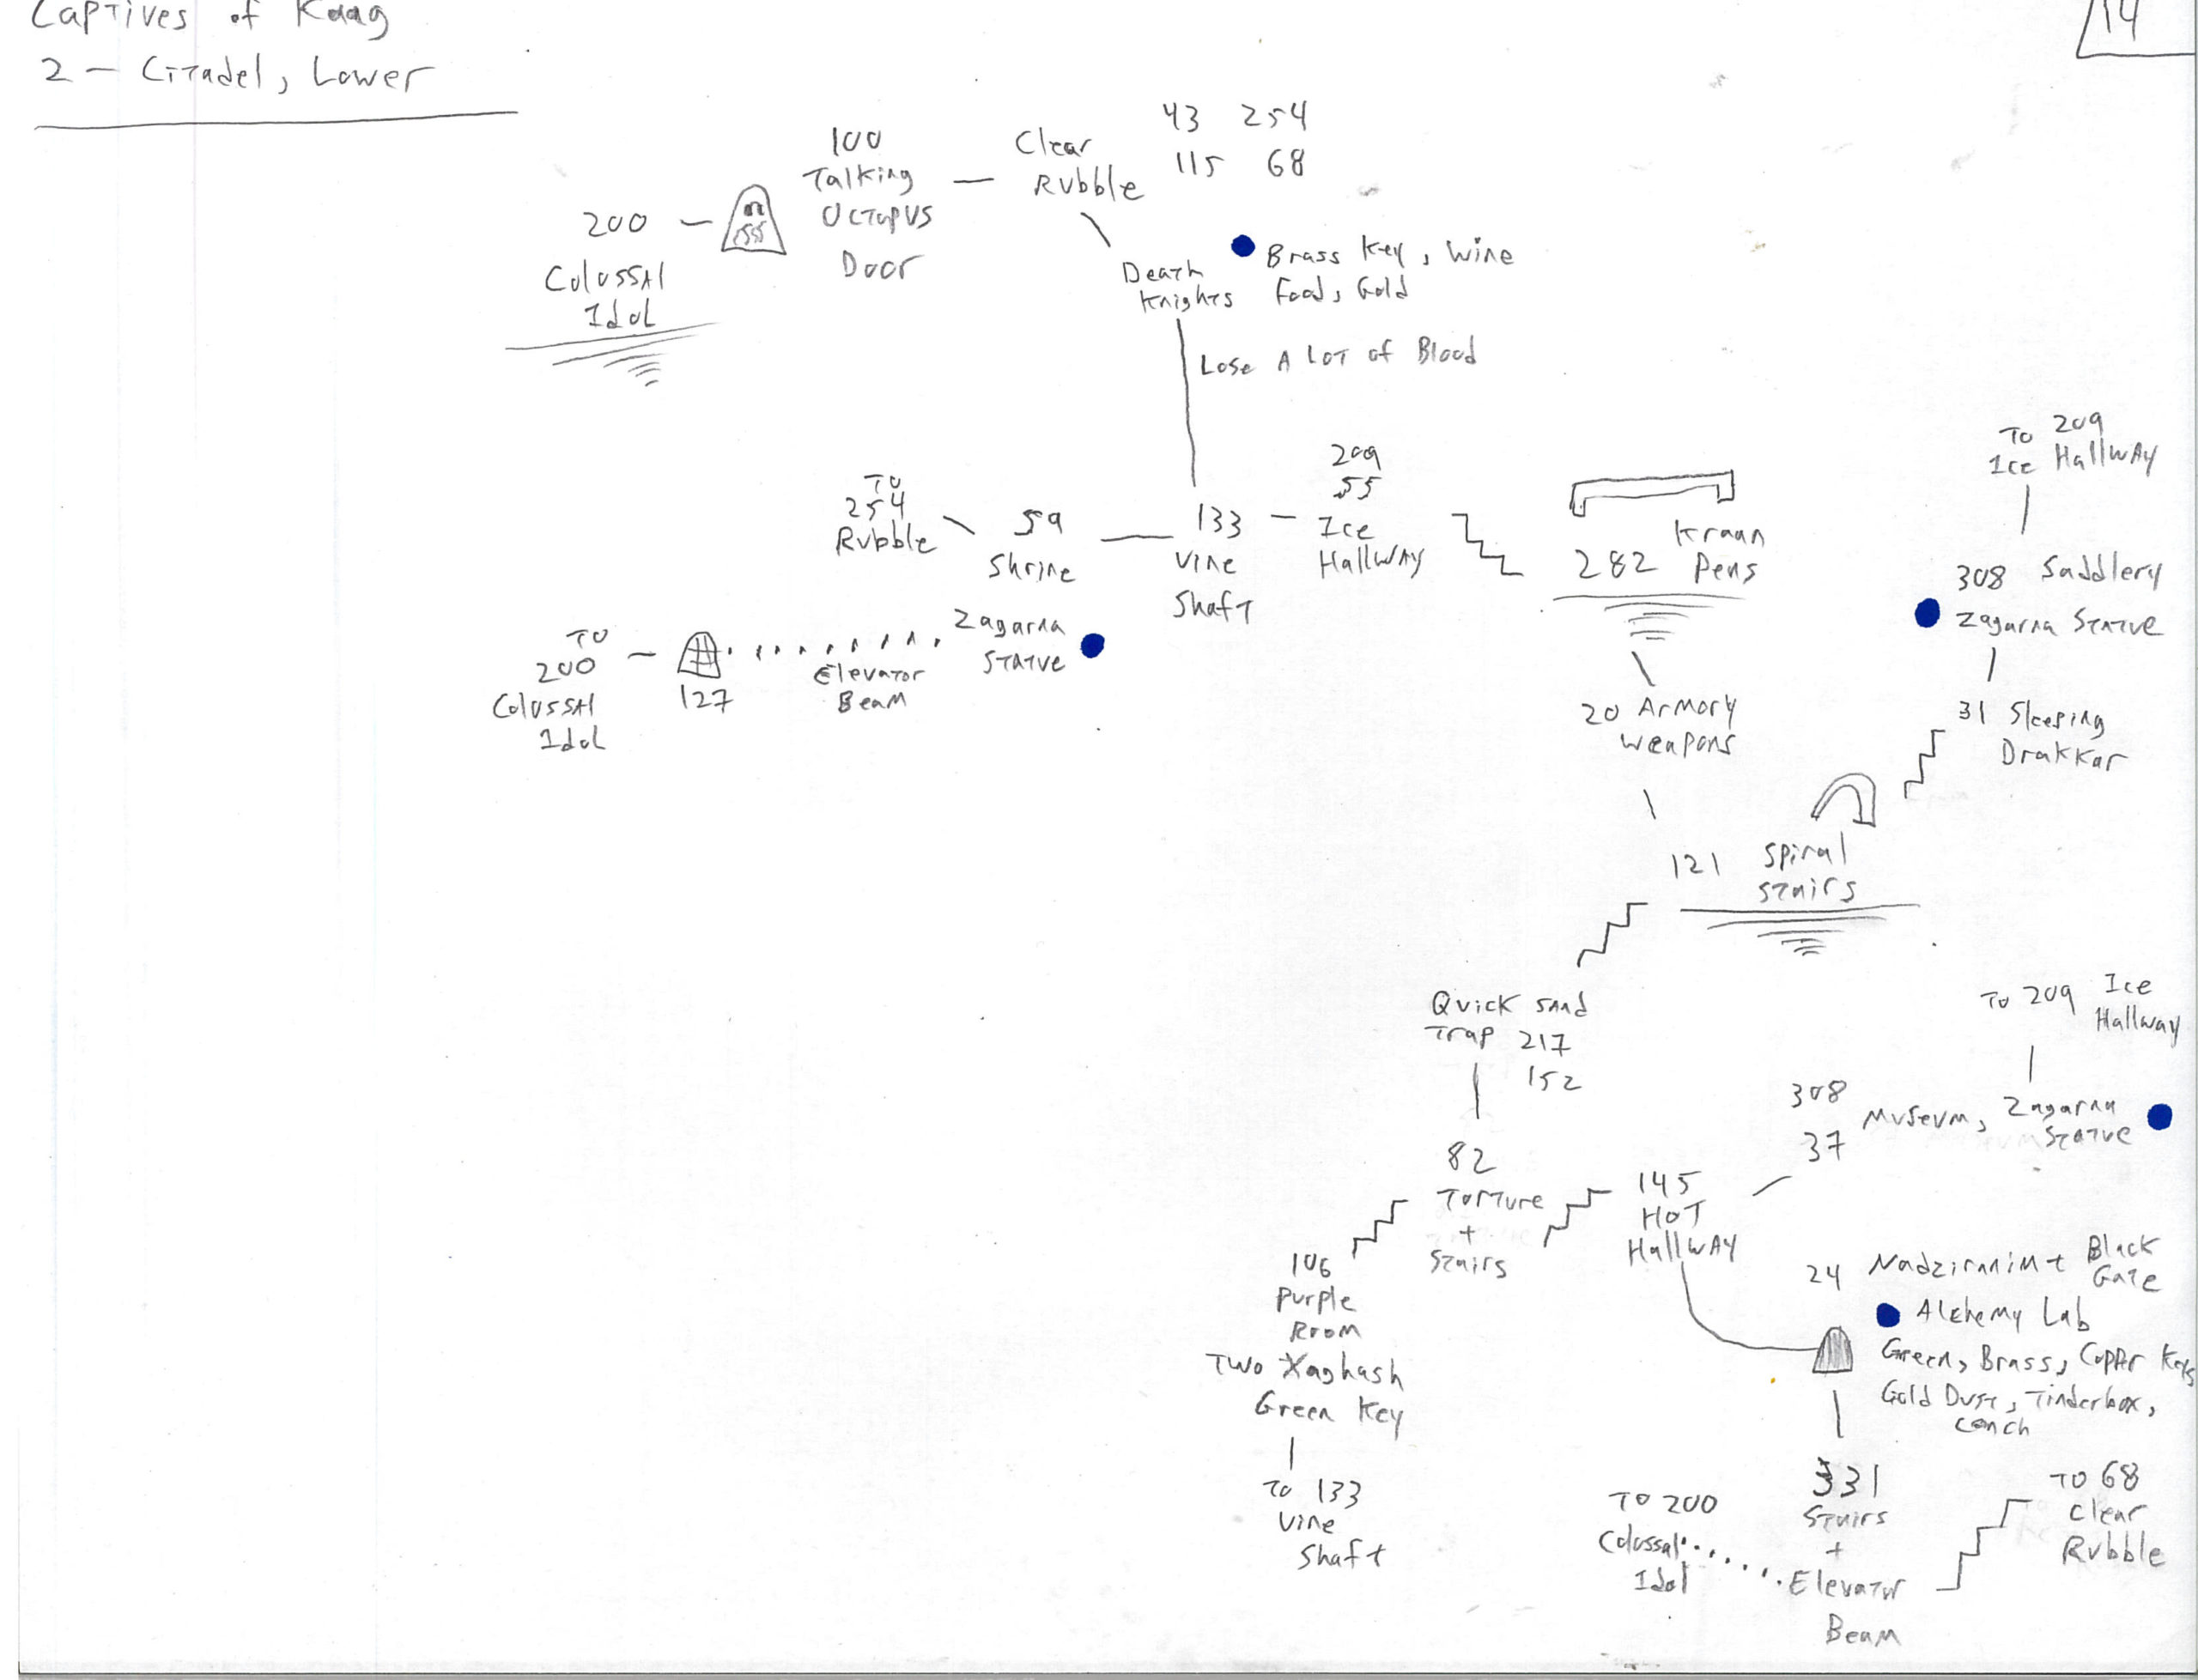 Captives of Kaag
14
2 - Citadel, Lower
43 254
115 68
100
Talking
Octopus
Door
Clear
Rubble
200
Colossal
Idol
Death
Knights
Brass Key, Wine
Food, Gold
Lose A Lot of Blood
To
254
Rubble
59
Shrine
133
Vine
Shaft
209
55
Ice
Hallway
282
Kraan
Pens
To 209
Ice Hallway
308 Saddlery
Zagarna Statue
31 Sleeping
Drakkar
To
200
Colossal
Idol
127
Elevator
Beam
Zagarna
Statue
20 Armory
Weapons
121 Spiral
Stairs
Quick Sand
Trap 217
152
To 209 Ice
Hallway
308
37
Museum, Zagarna
Statue
82
Torture
+
Stairs
145
Hot
Hallway
106
Purple
Room
Two Xaghash
Green Key
To 133
Vine
Shaft
24 Nadziranim + Black
Gate
Alchemy Lab
Green, Brass, Copper Keys
Gold Dust, Tinderbox,
Conch
331
Stairs
+
Elevator
Beam
To 200
Colossal
Idol
To 68
Clear
Rubble